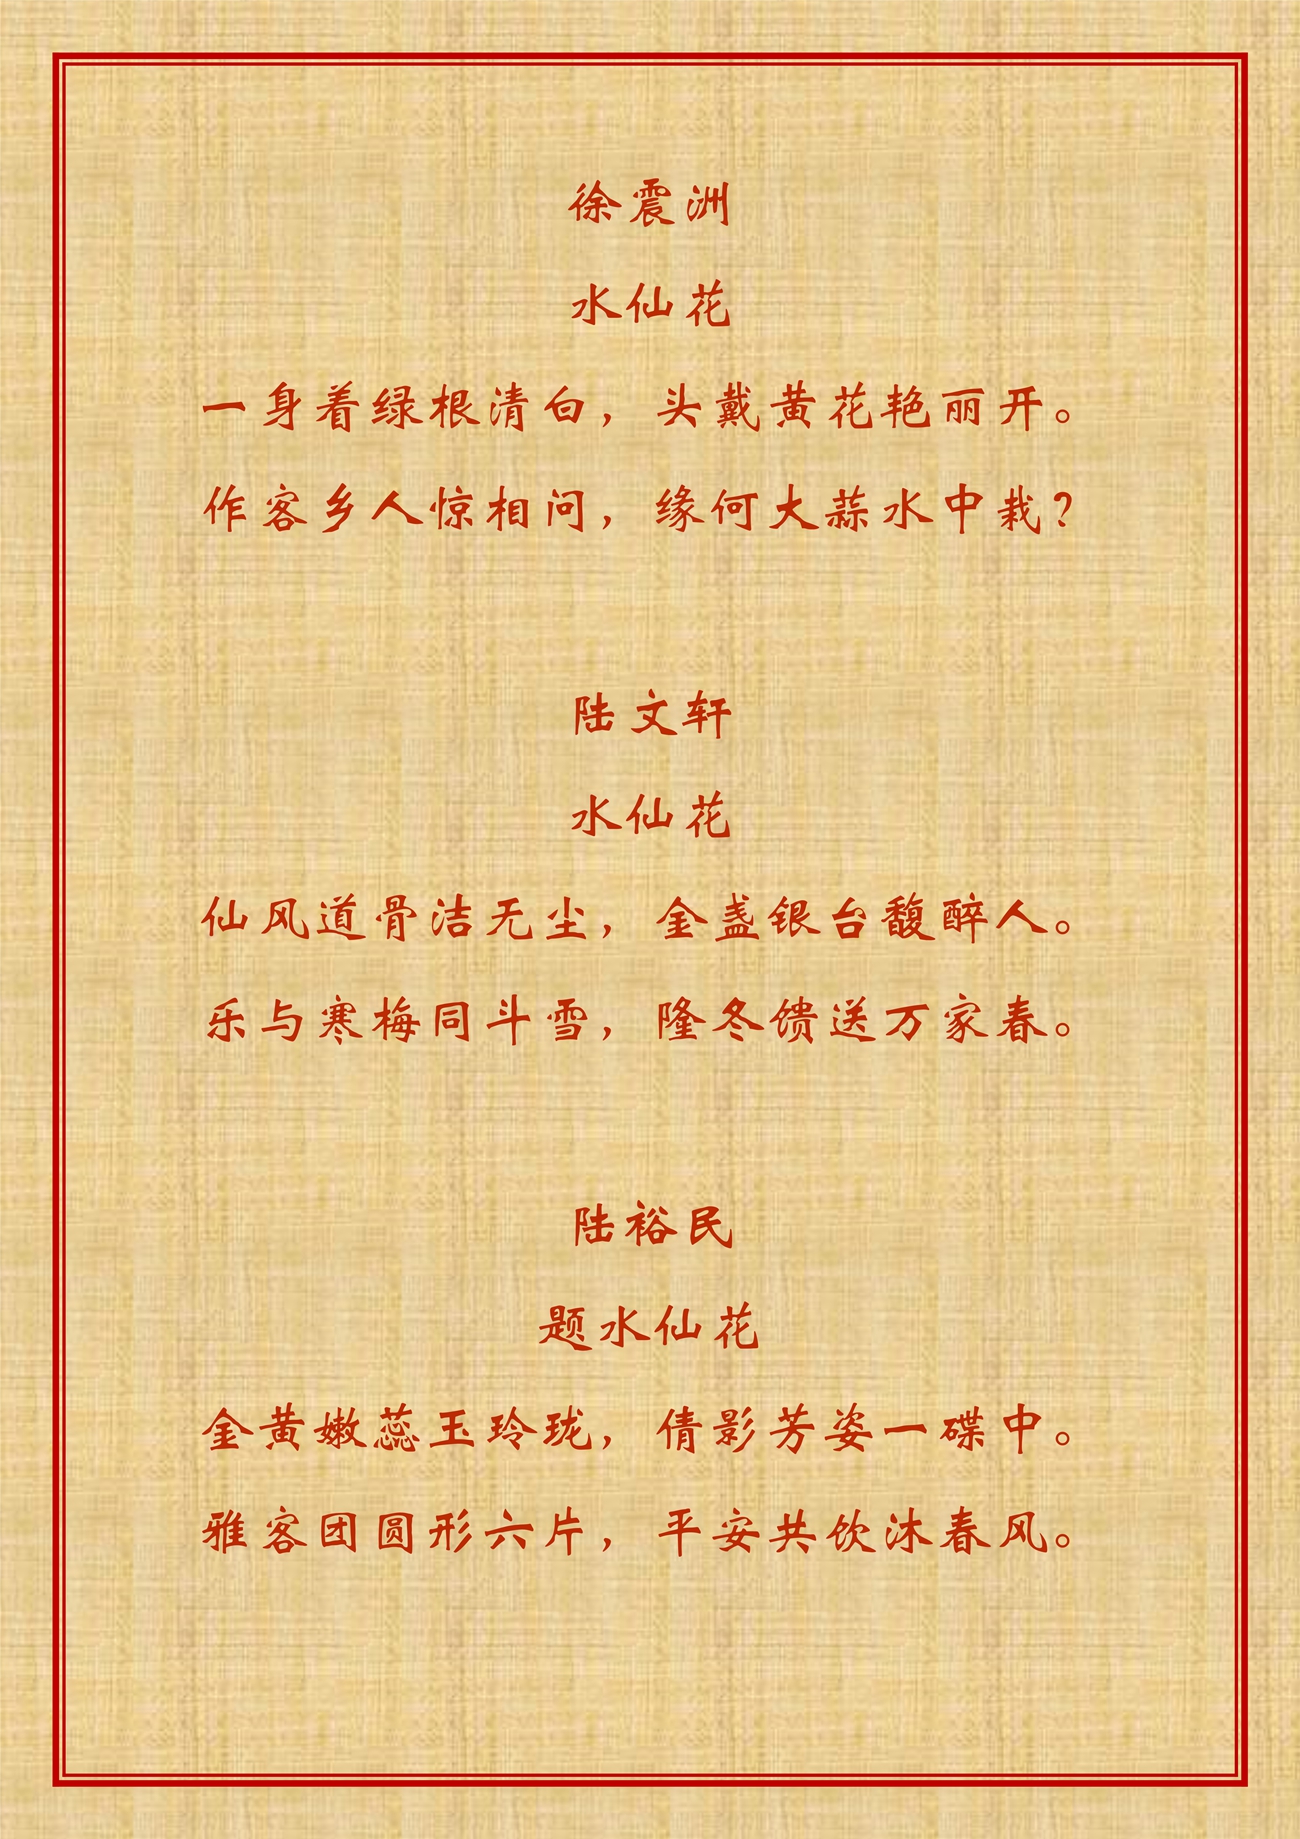 徐震洲
水仙花
一身着绿根清白，头戴黄花艳丽开。
作客乡人惊相问，缘何大蒜水中栽？
陆文轩
水仙花
仙风道骨洁无尘，金盏银台馥醉人。
乐与寒梅同斗雪，隆冬馈送万家春。
陆裕民
题水仙花
金黄嫩蕊玉玲珑，倩影芳姿一碟中。
雅客团圆形六片，平安共饮沐春风。